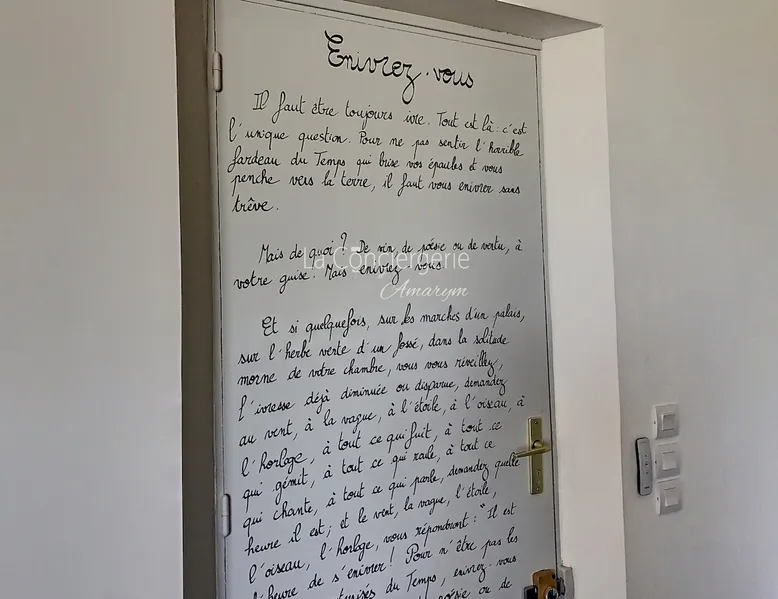 Enivrez-vous
Il faut être toujours ivre. Tout est là : c'est
l'unique question. Pour ne pas sentir l'horrible
fardeau du Temps qui brise vos épaules et vous
penche vers la terre, il faut vous enivrer sans
trêve.
Mais de quoi ? De vin, de poésie ou de vertu, à
votre guise. Mais enivrez-vous.
La Conciergerie
Amarym
Et si quelquefois, sur les marches d'un palais,
sur l'herbe verte d'un fossé, dans la solitude
morne de votre chambre, vous vous réveillez,
l'ivresse déjà diminuée ou disparue, demandez
au vent, à la vague, à l'étoile, à l'oiseau, à
l'horloge, à tout ce qui fuit, à tout ce
qui gémit, à tout ce qui roule, à tout ce
qui chante, à tout ce qui parle, demandez quelle
heure il est; et le vent, la vague, l'étoile,
l'oiseau, l'horloge, vous répondront : "Il est
l'heure de s'enivrer ! Pour n'être pas les
du Temps, enivrez-vous
poésie ou de